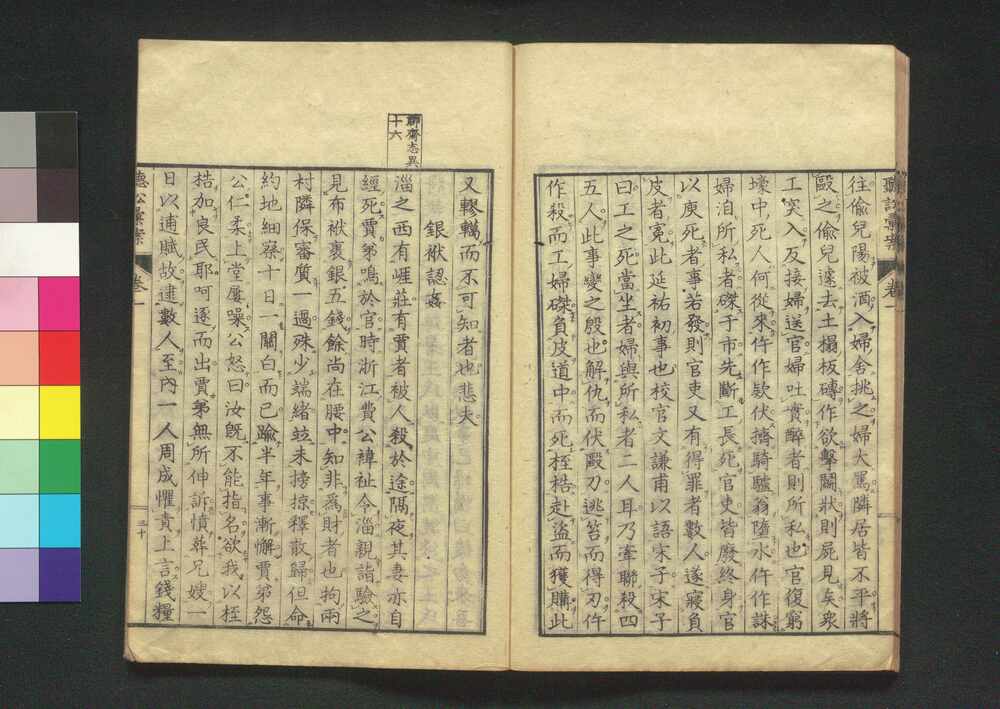 往偷兒陽被酒入婦舍挑之婦大罵隣居皆不平將
毆之偷兒遽去土榻板磚作欲擊鬭狀則屍見矣衆
工突入反接婦送官婦吐實醉者則所私也官復窮
壕中死人何從來仵作欵伏擠騎驢翁墮水仵作誅
婦洎所私者磔于市先斷工長死官吏皆廢終身官
以庾死者事若發則官吏又有得罪者數人遂寢負
皮者寃此延祐初事也校官文謙甫以語宋子宋子
曰工之死當坐者婦與所私者二人耳乃牽聯殺四
五人此事變之殷也解仇而伏毆刀逃笞而得刃仵
作殺而工婦磔負皮道中而死桎梏赴盜而獲購此
又轇轕而不可知者也悲夫
銀袱認姦
聊齋志異
十六
淄之西有崕莊有賈者被人殺於途隔夜其妻亦自
經死賈弟鳴於官時浙江費公褘祉令淄親詣驗之
見布袱裹銀五錢餘尚在腰中知非爲財者也拘兩
村隣保審質一過殊少端緒竝未搒掠釋散歸但命
約地細察十日一關白而已踰半年事漸懈賈弟怨
公仁柔上堂屢噪公怒曰汝既不能指名欲我以桎
梏加良民耶呵逐而出賈弟無所伸訴憤葬兄嫂一
日以逋賦故逮數人至內一人周成懼責上言錢糧
卷一
三十